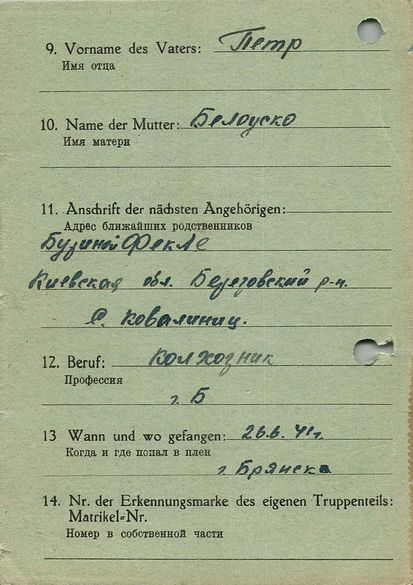 9. Vorname des Vaters: Петр
Имя отца
10. Name der Mutter: Белоуско
Имя матери
11. Anschrift der nächsten Angehörigen:
Адрес ближайших родственников
Бузиной Фекле
Киевская обл. Березовский р-н.
С. Ковалиниц.
12. Beruf: Колхозник
Профессия
г. Б
13 Wann und wo gefangen: 26.6.41г.
Когда и где попал в плен
г. Брянска
14. Nr. der Erkennungsmarke des eigenen Truppenteils:
Matrikel-Nr.
Номер в собственной части